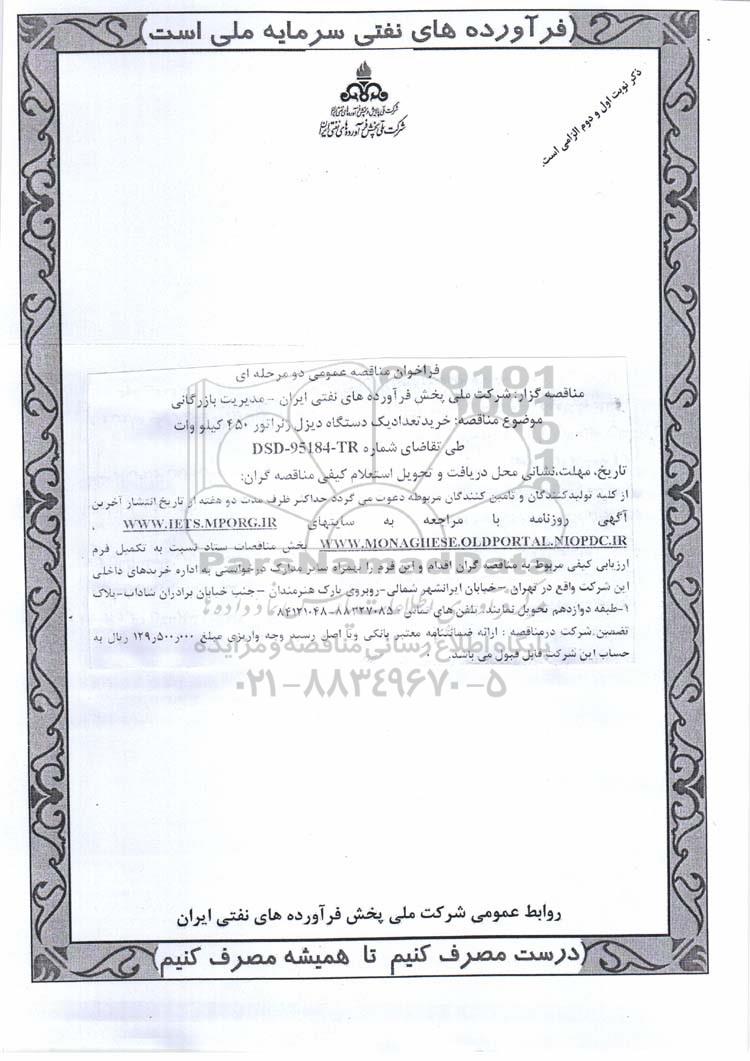 فرآورده های نفتی سرمایه ملی است
ذکر نوبت اول و دوم الزامی است.
شرکت ملی پالایش و پخش فرآورده های نفتی ایران
شرکت ملی پخش فرآورده های نفتی ایران
فراخوان مناقصه عمومی دو مرحله ای
مناقصه گزار: شرکت ملی پخش فرآورده های نفتی ایران – مدیریت بازرگانی
موضوع مناقصه: خریدتعدادیک دستگاه دیزل ژنراتور ۴۵۰ کیلو وات
طی تقاضای شماره DSD-95184-TR
تاریخ، مهلت،نشانی محل دریافت و تحویل استعلام کیفی مناقصه گران:
از کلیه تولیدکنندگان و تامین کنندگان مربوطه دعوت می گردد حداکثر ظرف مدت دو هفته از تاریخ انتشار آخرین
آگهی روزنامه با مراجعه به سایتهای WWW.IETS.MPORG.IR ,
WWW.MONAGHESE.OLDPORTAL.NIOPDC.IR بخش مناقصات ستاد نسبت به تکمیل فرم
ارزیابی کیفی مربوط به مناقصه گران اقدام و این فرم را بهمراه سایر مدارک درخواستی به اداره خریدهای داخلی
این شرکت واقع در تهران – خیابان ایرانشهر شمالی-روبروی پارک هنرمندان – جنب خیابان برادران شاداب-پلاک
۱-طبقه دوازدهم تحویل نمایند. تلفن های تماس: ۸۸۳۲۷۰۸۵-۸۴۱۲۱۰۴۸
تضمین شرکت درمناقصه : ارائه ضمانتنامه معتبر بانکی ویا اصل رسید وجه واریزی مبلغ ۱۲۹٫۵۰۰٫۰۰۰ ریال به
حساب این شرکت قابل قبول می باشد.
ParsNamadData
پایگاه اطلاع رسانی مناقصه و مزایده
۰۲۱-۸۸۳۴۹۶۷۰-۵
روابط عمومی شرکت ملی پخش فرآورده های نفتی ایران
درست مصرف کنیم تا همیشه مصرف کنیم